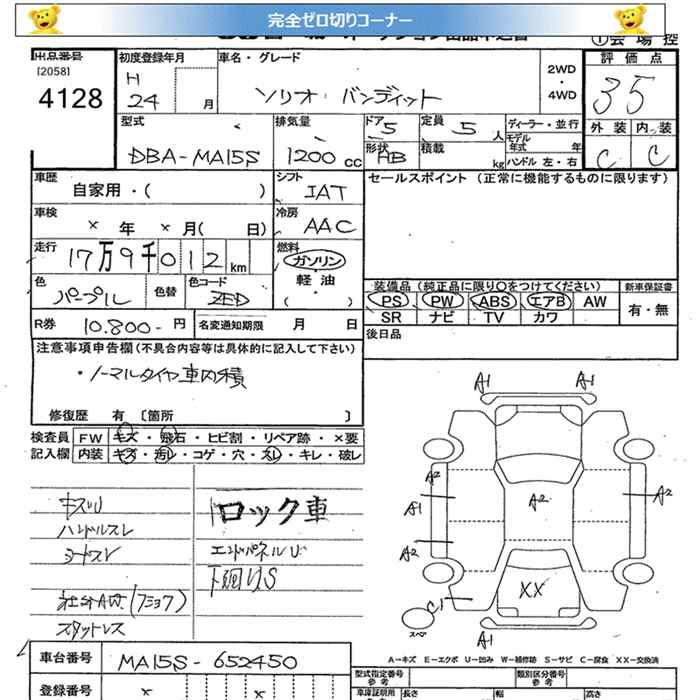 完全ゼロ切りコーナー
出品番号
[2058]
4128
初度登録年月
H
24 月
車名・グレード
ソリオ バンディット
2WD
・
4WD
①会場控
評価点
35
外装 内装
C C
型式
DBA-MA15S
排気量
1200 cc
ドア 5
形状 HB
定員 5 人
積載 kg
ディーラー・並行
モデル
年式 年
ハンドル 左・右
車歴
自家用・( )
シフト
IAT
セールスポイント (正常に機能するものに限ります)
車検
× 年 × 月( 日)
冷房
AAC
走行
17万9千012 km
燃料
ガソリン
・
軽油
( )
色
パープル
色替
色コード
ZED
装備品(純正品に限り○をつけてください)
PS PW ABS エアB AW
SR ナビ TV カワ
新車保証書
有・無
R券
10.800- 円
名変通知期限 月 日
後日品
注意事項申告欄(不具合内容等は具体的に記入して下さい)
・ノーマルタイヤ車内積
修復歴 有 〔箇所 〕
検査員
記入欄
FW キズ・飛石・ヒビ割・リペア跡・×要
内装 キズ・汚レ・コゲ・穴・スレ・キレ・破レ
キズU
ハンドルスレ
シートスレ
スタットレス
ロック車
エンドパネルU
下廻りS
A1 A1
A2
A1
A2
A2
A2
XX
C1
スペア
A1
A-キズ E-エクボ U-凹み W-補修跡 S-サビ C-腐食 XX-交換済
車台番号
MA15S-652450
登録番号
× ×
型式指定番号
参考
類別区分番号
参考
車庫証明用
長さ 幅 高さ